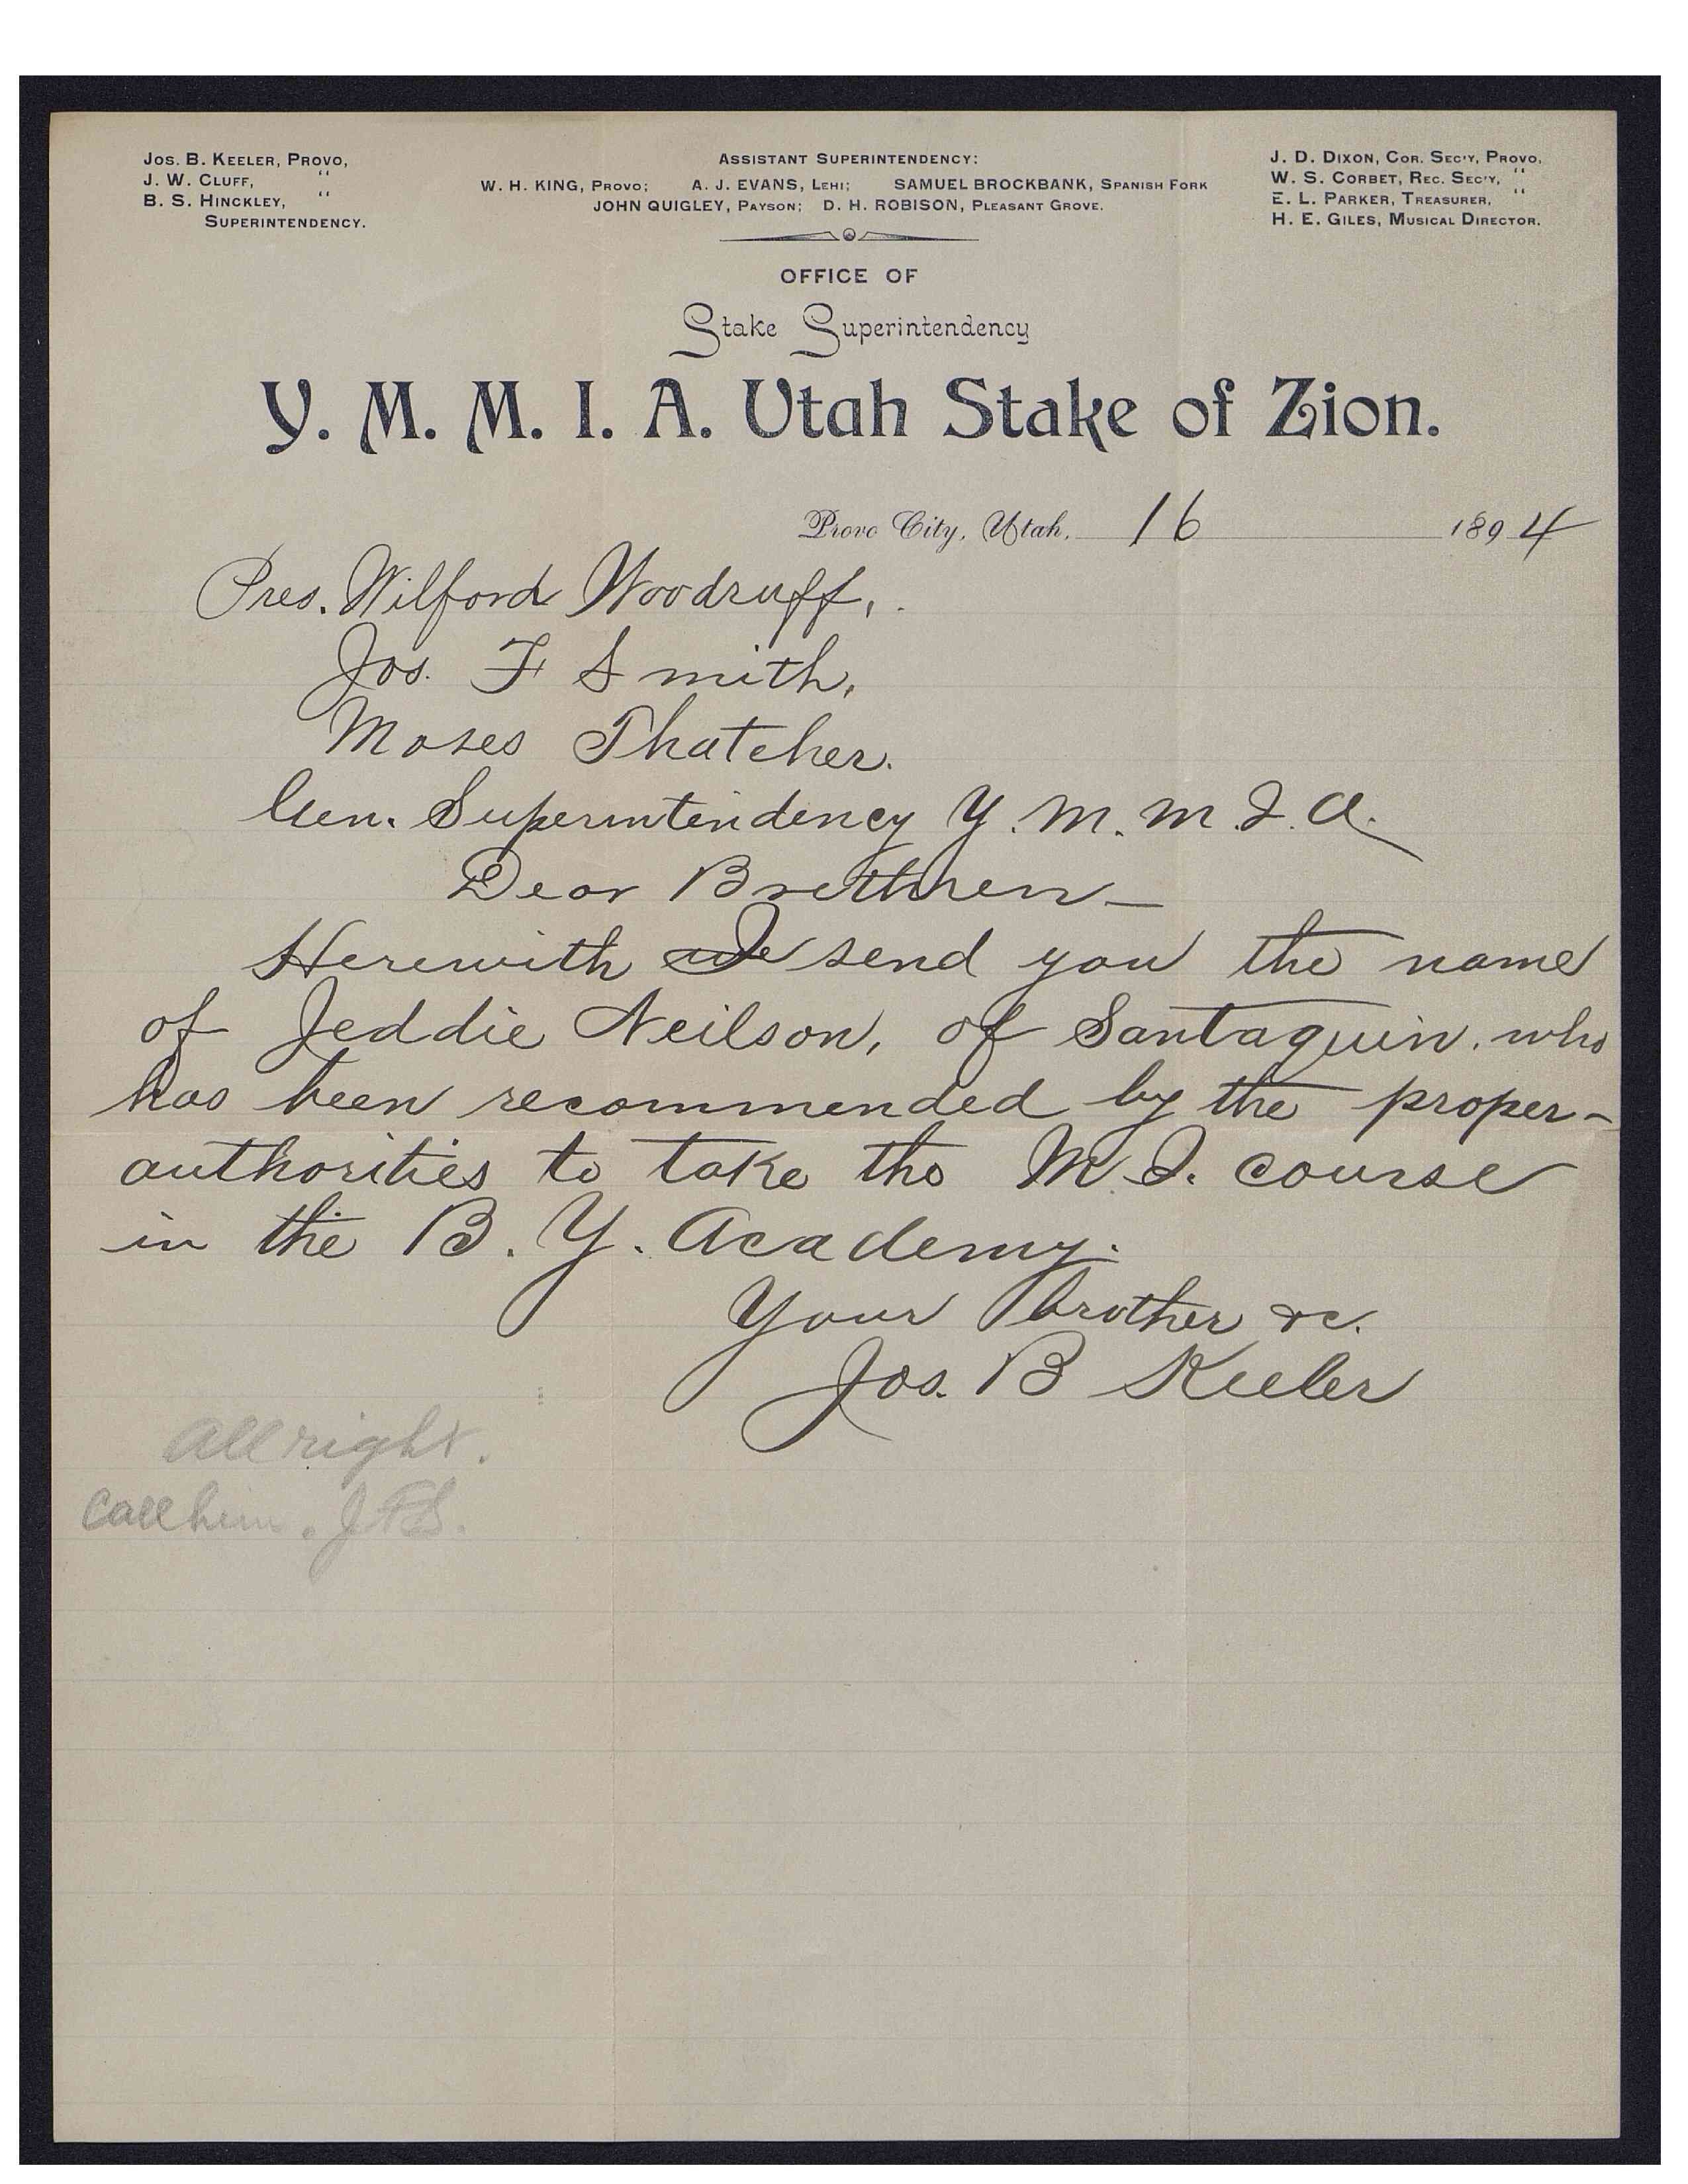 Jos. B. Keeler, Provo,
J. W. Cluff, "
B. S. Hinckley, "
Superintendency.
Assistant Superintendency:
W. H. King, Provo; A. J. Evans, Lehi; Samuel Brockbank, Spanish Fork
John Quigley, Payson; D. H. Robison, Pleasant Grove.
J. D. Dixon, Cor. Sec'y, Provo,
W. S. Corbet, Rec. Sec'y, "
E. L. Parker, Treasurer, "
H. E. Giles, Musical Director.
OFFICE OF
Stake Superintendency
Y. M. M. I. A. Utah Stake of Zion.
Provo City, Utah, 16 1894
Pres. Wilford Woodruff,
Jos. F Smith,
Moses Thatcher.
Gen. Superintendency Y. M. M. I. A.
Dear Brethren—
Herewith I send you the name
of Jeddie Neilson, of Santaquin, who
has been recommended by the proper-
authorities to take the M. I. course
in the B. Y. Academy.
Your brother &c.
Jos. B Keeler
All right.
Call him. J.F.S.